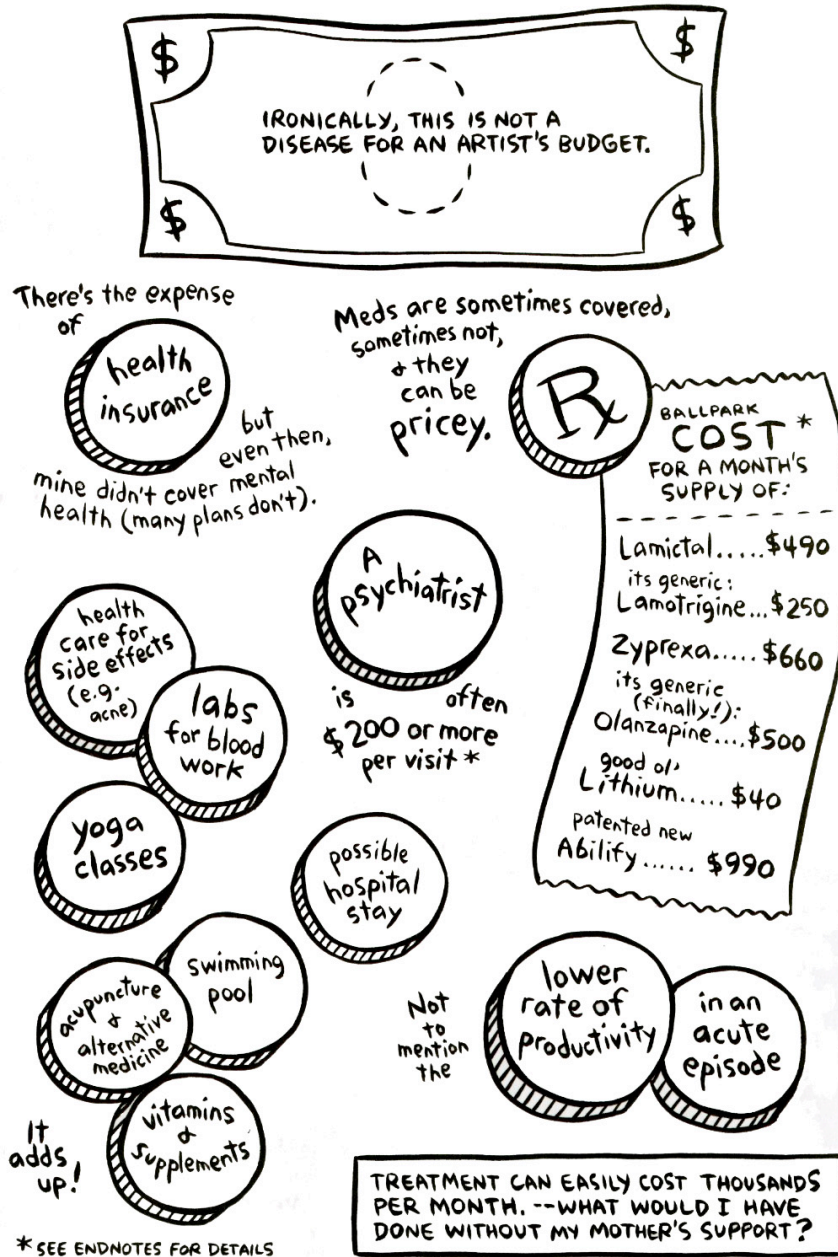 $ $
IRONICALLY, THIS IS NOT A
DISEASE FOR AN ARTIST'S BUDGET.
$ $
There's the expense
of
health
insurance
but
even then,
mine didn't cover mental
health (many plans don't).
Meds are sometimes covered,
sometimes not,
& they
can be
pricey.
Rx
BALLPARK
COST *
FOR A MONTH'S
SUPPLY OF:
Lamictal.....$490
its generic:
Lamotrigine...$250
Zyprexa.....$660
its generic
(finally!):
Olanzapine....$500
good ol'
Lithium..... $40
patented new
Abilify...... $990
A
psychiatrist
is often
$200 or more
per visit *
health
care for
side effects
(e.g.
acne)
labs
for blood
work
yoga
classes
possible
hospital
stay
swimming
pool
acupuncture
&
alternative
medicine
vitamins
&
supplements
It
adds
up!
Not
to
mention
the
lower
rate of
productivity
in an
acute
episode
TREATMENT CAN EASILY COST THOUSANDS
PER MONTH. --WHAT WOULD I HAVE
DONE WITHOUT MY MOTHER'S SUPPORT?
* SEE ENDNOTES FOR DETAILS